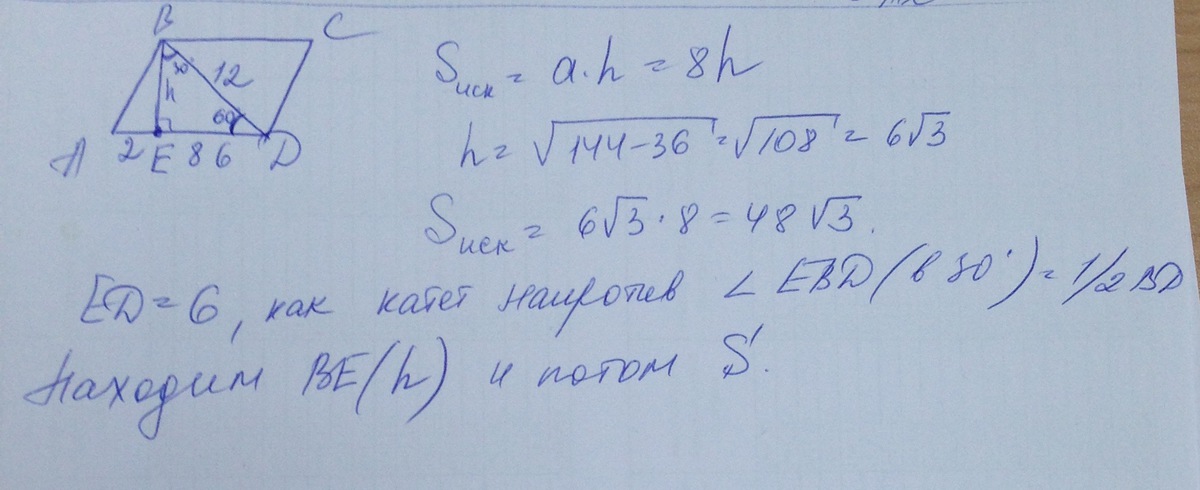 B C
30° 12
h
60°
A 2 E 8 6 D
Sиск = a·h = 8h
h = √144-36 = √108 = 6√3
Sиск = 6√3·8 = 48√3.
ED=6, как катет напротив ∠EBD (в 30°) = 1/2 BD
Находим BE(h) и потом S.